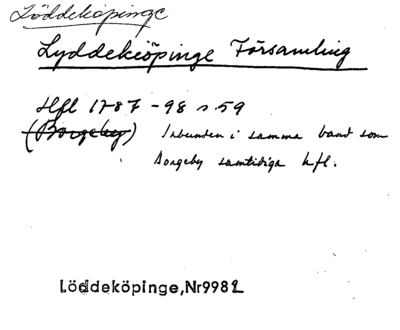 Löddeköpinge
Lyddekiöpinge Församling
Hfl 1787-98 s 59
(Borgeby) Inbunden i samma band som
Borgeby samtidiga hfl.
Löddeköpinge,Nr9982